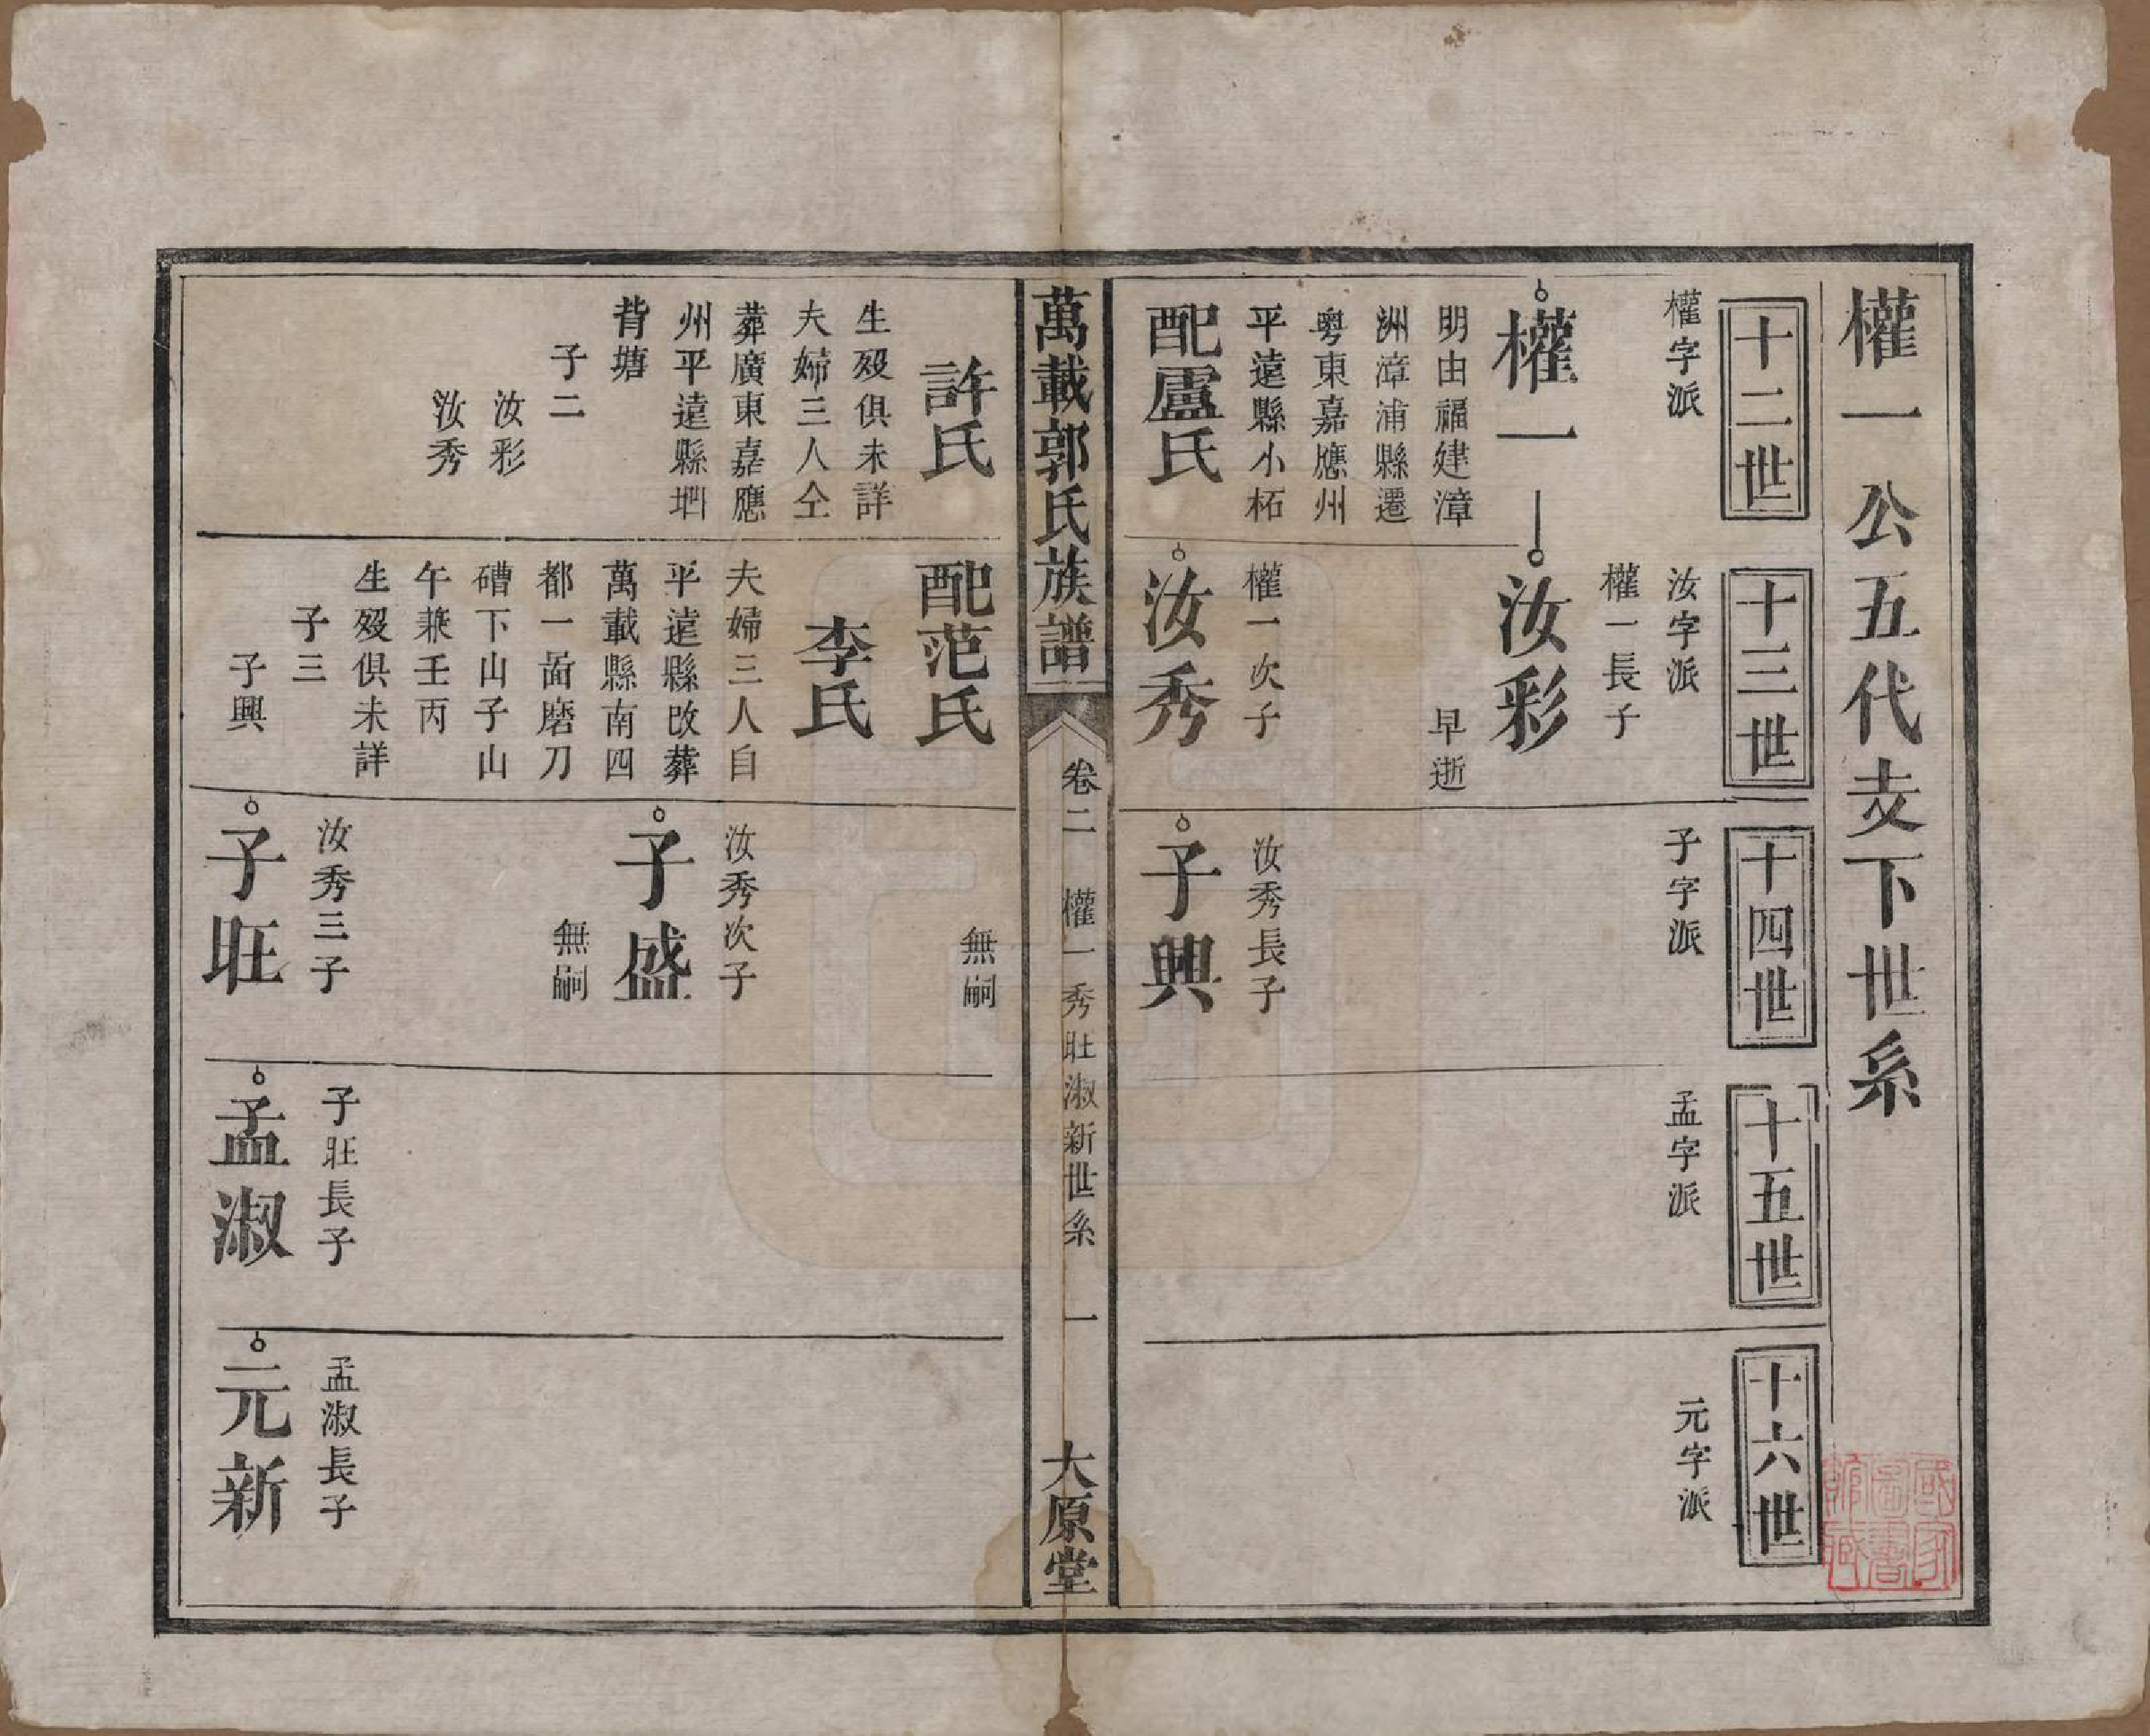 權一公五代支下世系
十二世
權字派
權一
明由福建漳
洲漳浦縣遷
粵東嘉應州
平遠縣小柘
配盧氏
十三世
汝字派
權一長子
汝彩
早逝
權一次子
汝秀
十四世
子字派
汝秀長子
子興
十五世
孟字派
十六世
元字派
萬載郭氏族譜
卷二
權一秀旺淑新世系
一
大原堂
許氏
生殁俱未詳
夫婦三人仝
葬廣東嘉應
州平遠縣垇
背塘
子二
汝彩
汝秀
配范氏
李氏
夫婦三人自
平遠縣改葬
萬載縣南四
都一啚磨刀
磳下山子山
午兼壬丙
生殁俱未詳
子三
子興
無嗣
汝秀次子
子盛
無嗣
汝秀三子
子旺
子旺長子
孟淑
孟淑長子
元新
國家
圖書
館藏